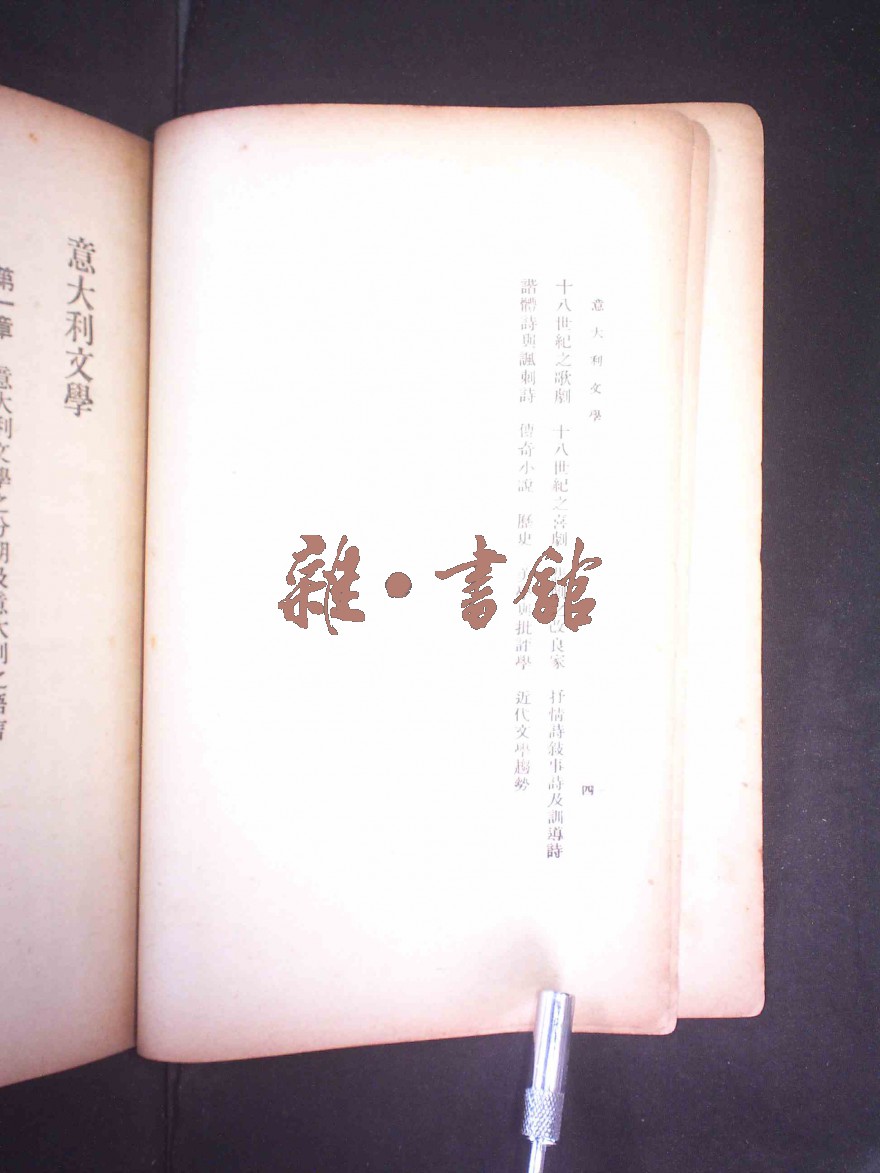 意大利文學
四
十八世紀之歌劇 十八世紀之喜劇 改良家 抒情詩敍事詩及訓導詩
諧體詩與諷刺詩 傳奇小說 歷史 與批評學 近代文學趨勢
意大利文學
第一章 意大利文學之分期及意大利之語言
雜·書館